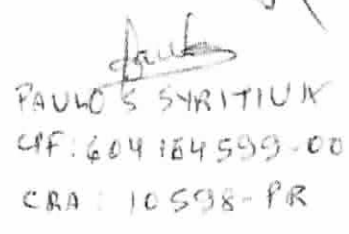 PAULO S SYRITIUK
CPF: 604 184 599-00
CRA: 10598-PR